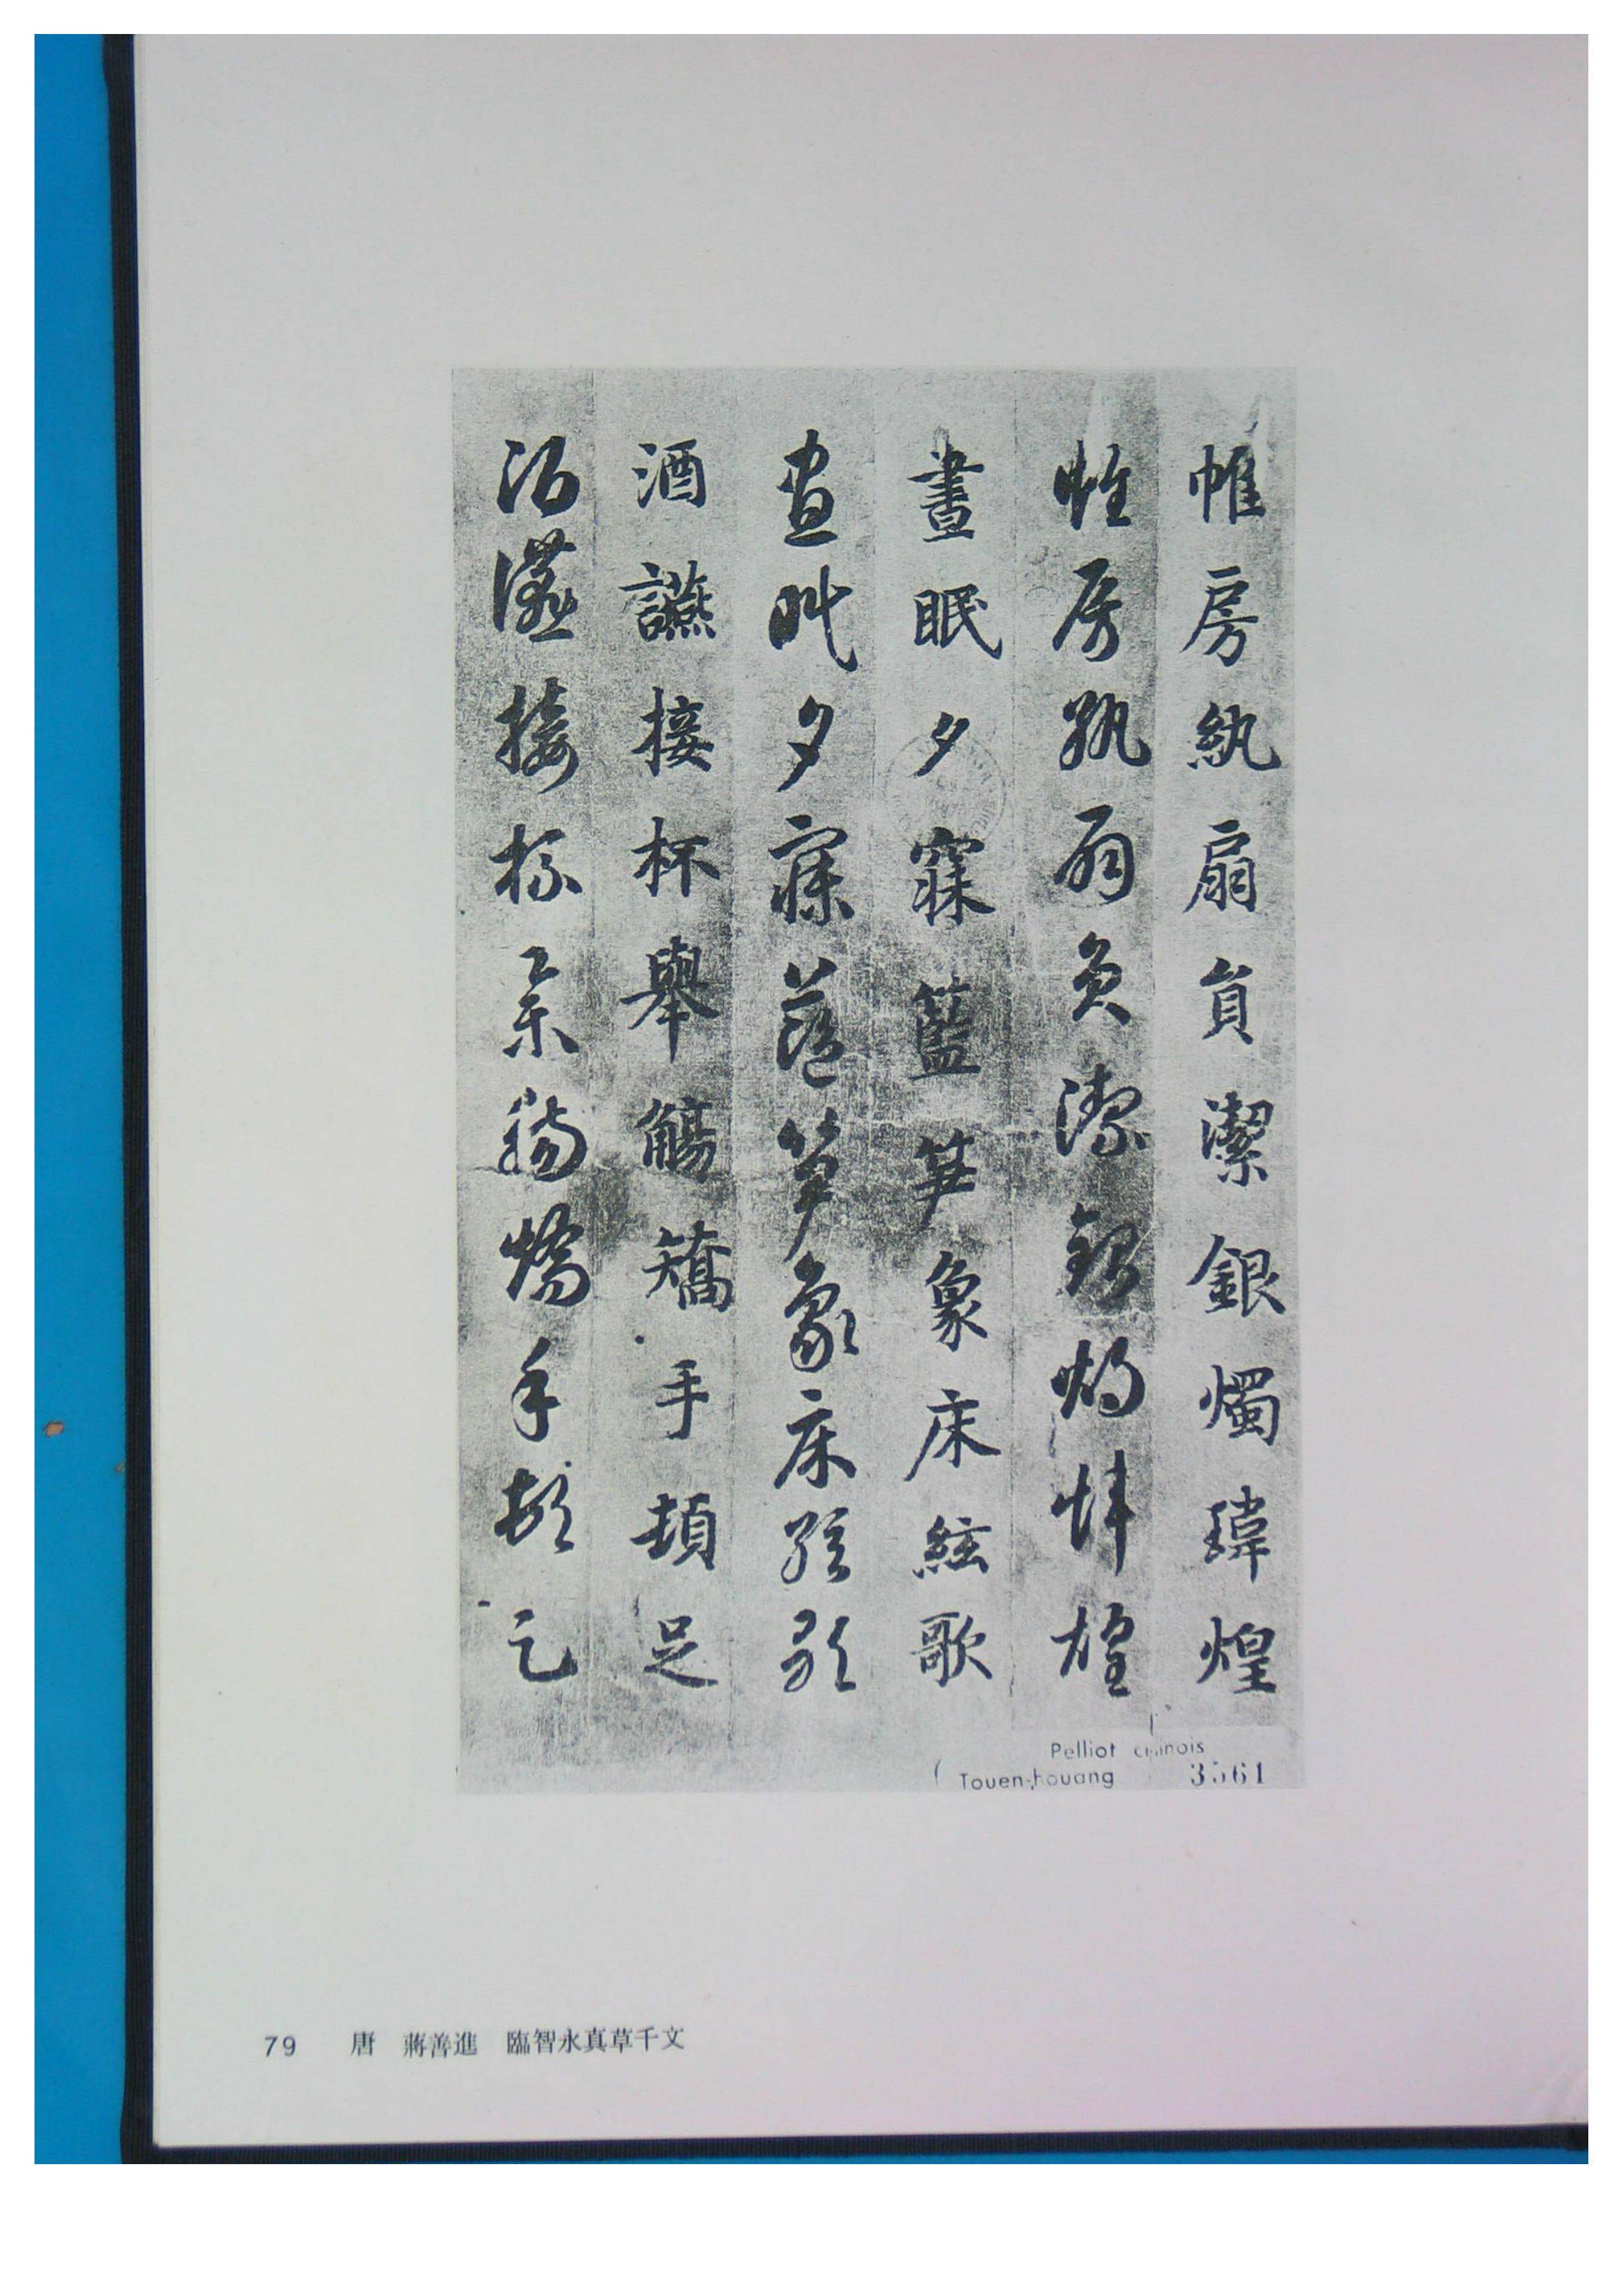 帷房紈扇員潔銀燭瑋煌
帷房紈扇員潔銀燭瑋煌
晝眠夕寐藍笋象床絃歌
晝眠夕寐藍笋象床絃歌
酒讌接杯舉觴矯手頓足
酒讌接杯舉觴矯手頓足
Pelliot chinois
Touen-houang 3561
79 唐 蔣善進 臨智永真草千文